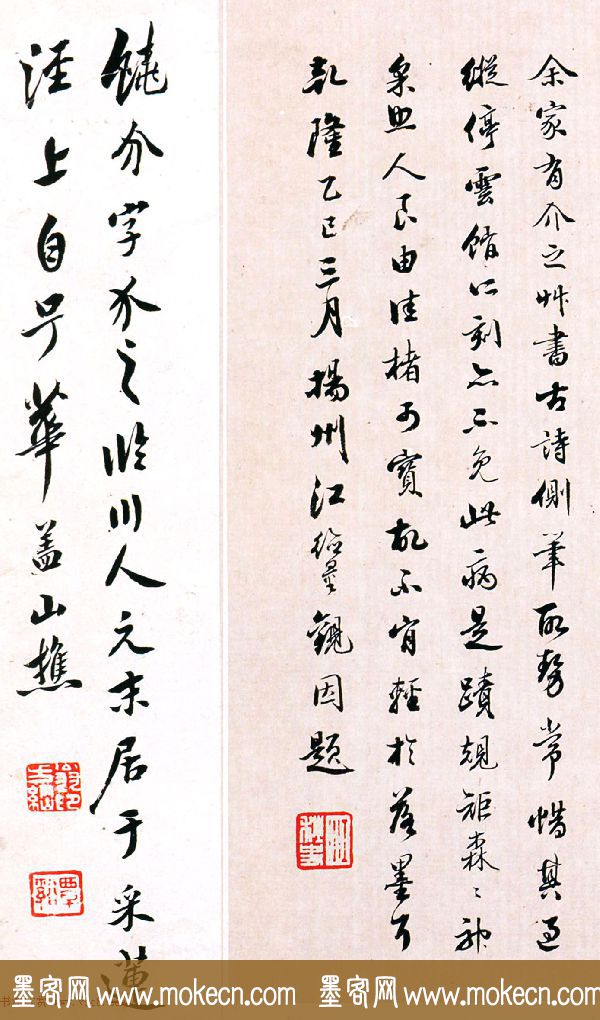 余家有介之艸書古詩側筆取勢常惜其過
縱停雲館所刻亦不免此病是蹟規矩森〻神
采照人良由佳楮可寶故不肯輕於落墨耳
乾隆乙巳三月揚州江德量觀因題
饒介字介之臨川人元末居于采蓮
涇上自号華蓋山樵
翁方綱印
覃谿
墨客网 www.mokecn.com 墨客网 www.mokecn.com